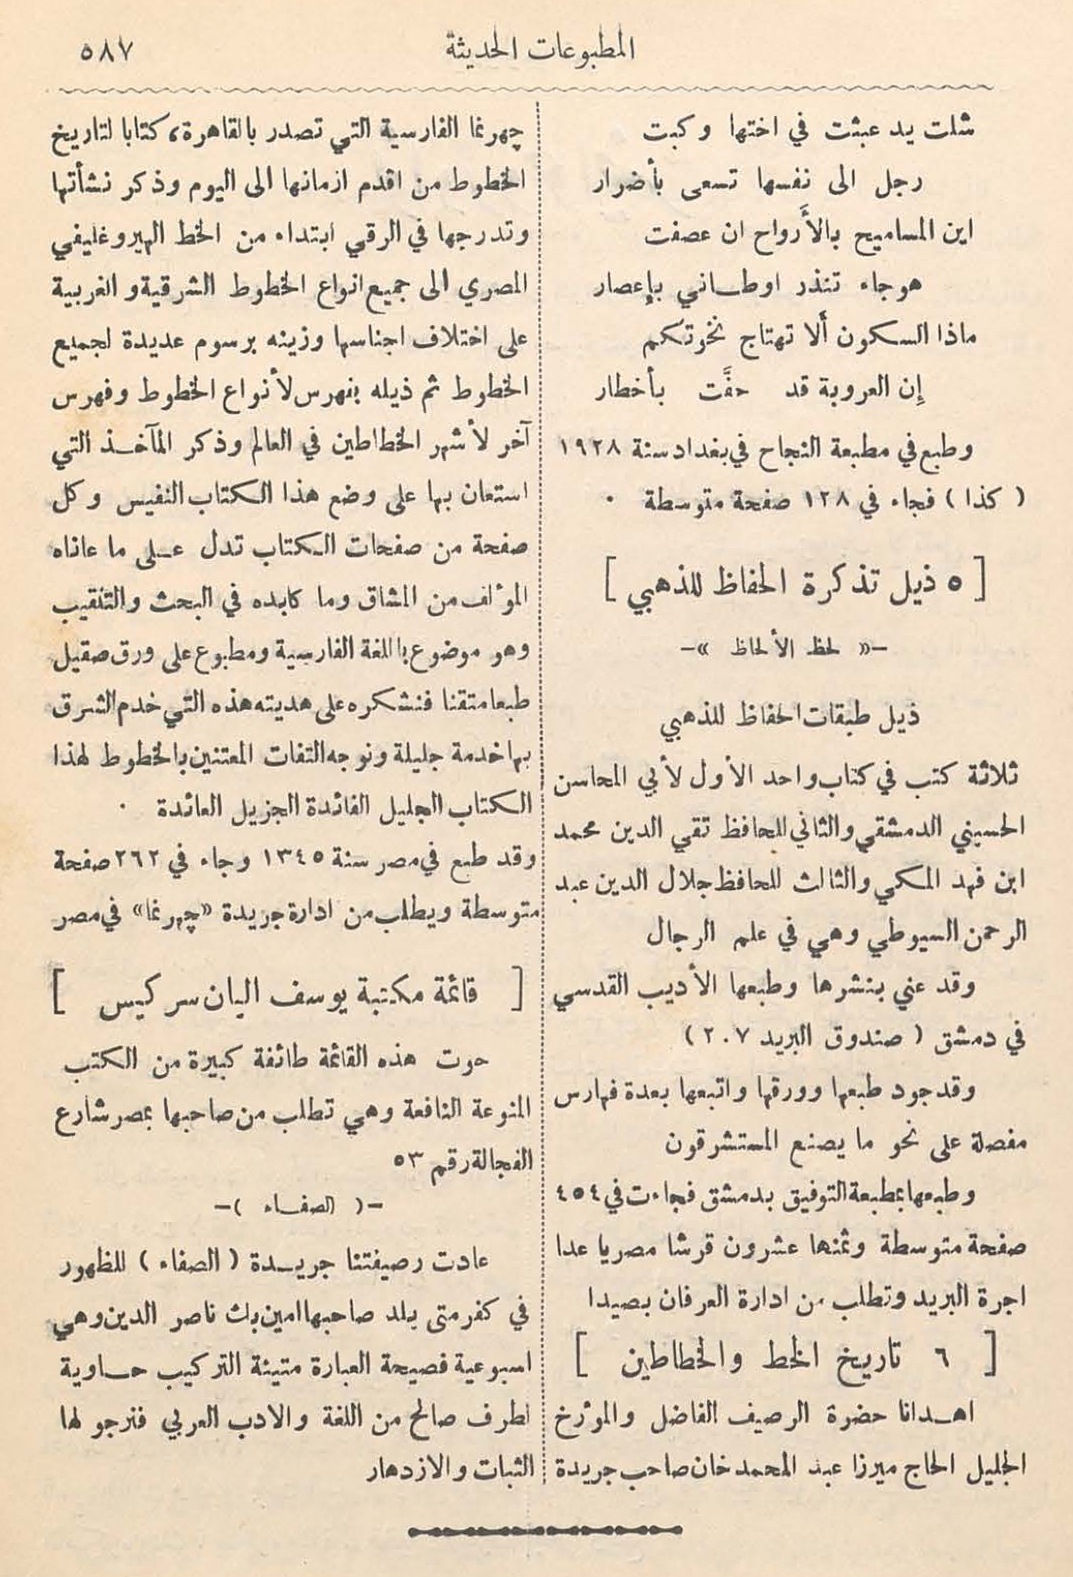 المطبوعات الحديثة
٥٨٧
شلت يد عبثت في اختها وكبت
رجل الى نفسها تسعى بأضرار
اين المساميح بالأَرواح ان عصفت
هوجاء تنذر اوطـاني بإعصار
ماذا السكون أَلا تهتاج نخوتكم
إن العروبة قد حفَّت بأخطار
وطبع في مطبعة النجاح في بغداد سنة ١٩٢٨
( كذا ) فجاء في ١٢٨ صفحة متوسطة ·
[ ٥ ذيل تذكرة الحفاظ للذهبي ]
–« لحظ الألحاظ »–
ذيل طبقات الحفاظ للذهبي
ثلاثة كتب في كتاب واحد الأول لأبي المحاسن
الحسيني الدمشقي والثاني للحافظ تقي الدين محمد
ابن فهد المكي والثالث للحافظ جلال الدين عبد
الرحمن السيوطي وهي في علم الرجال
وقد عني بنشرها وطبعها الأديب القدسي
في دمشق ( صندوق البريد ٢٠٧ )
وقد جود طبعها وورقها واتبعها بعدة فهارس
مفصلة على نحو ما يصنع المستشرقون
وطبعها بمطبعة التوفيق بدمشق فجاءت في ٤٥٤
صفحة متوسطة وثمنها عشرون قرشا مصريا عدا
اجرة البريد وتطلب من ادارة العرفان بصيدا
[ ٦ تاريخ الخط والخطاطين ]
اهـدانا حضرة الرصيف الفاضل والمؤرخ
الجليل الحاج ميرزا عبد المحمد خان صاحب جريدة
چهرنما الفارسية التي تصدر بالقاهرة، كتابا لتاريخ
الخطوط من اقدم ازمانها الى اليوم وذكر نشأتها
وتدرجها في الرقي ابتداء من الخط الهيروغليفي
المصري الى جميع انواع الخطوط الشرقية والغربية
على اختلاف اجناسها وزينه برسوم عديدة لجميع
الخطوط ثم ذيله بفهرس لأنواع الخطوط وفهرس
آخر لأشهر الخطاطين في العالم وذكر المآخـذ التي
استعان بها على وضع هذا الكتاب النفيس وكل
صفحة من صفحات الكتاب تدل عـلى ما عاناه
المؤلف من المشاق وما كابده في البحث والتنقيب
وهو موضوع باللغة الفارسية ومطبوع على ورق صقيل
طبعا متقنا فنشكره على هديته هذه التي خدم الشرق
بها خدمة جليلة ونوجه التفات المعتنين بالخطوط لهذا
الكتاب الجليل الفائدة الجزيل العائدة ·
وقد طبع في مصر سنة ١٣٤٥ وجاء في ٢٦٢ صفحة
متوسطة ويطلب من ادارة جريدة «چهرنما» في مصر
[ قائمة مكتبة يوسف اليان سركيس ]
حوت هذه القائمة طائفة كبيرة من الكتب
المنوعة النافعة وهي تطلب من صاحبها بمصر شارع
الفجالة رقم ٥٣
–( الصفـاء )–
عادت رصيفتنا جريـدة ( الصفاء ) للظهور
في كفرمتى بلد صاحبها امين بك ناصر الدين وهي
اسبوعية فصيحة العبارة متينة التركيب حـاوية
لطرف صالح من اللغة والادب العربي فنرجو لها
الثبات والازدهار